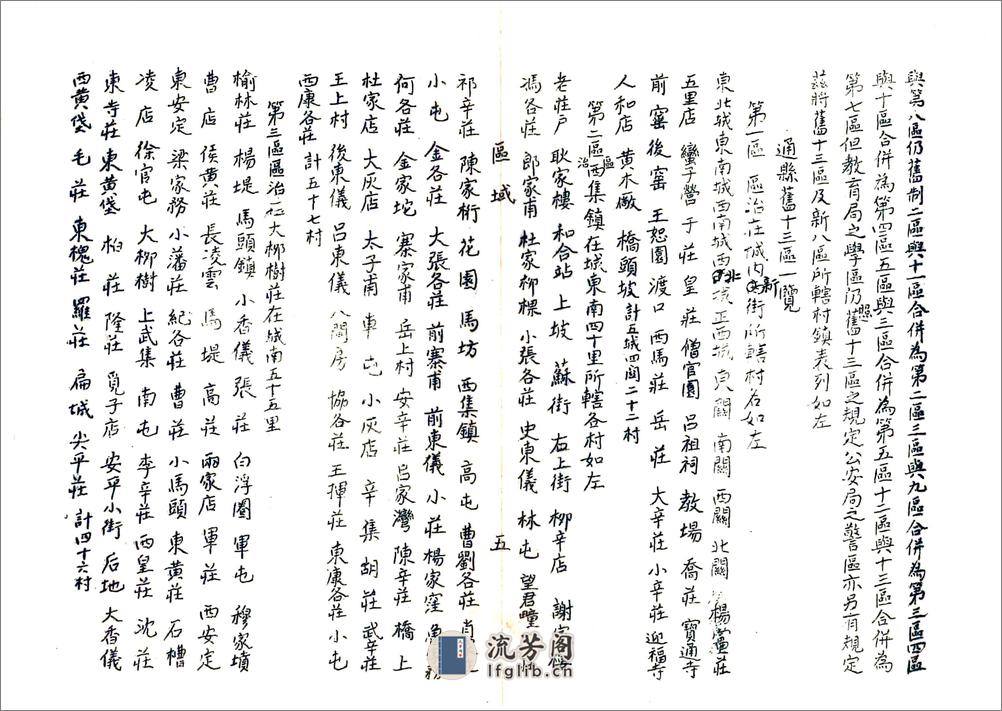 與第八區仍舊制二區與十一區合併為第二區三區與九區合併為第三區四區
與十區合併為第四區五區與三區合併為第五區十二區與十三區合併為
第七區但教育局之學區仍照舊十三區之規定公安局之警區亦另有規定
茲將舊十三區及新八區所轄村鎮表列如左
通縣舊十三區一覽
第一區 區治在城內新街所轄村名如左
東北城東南城西南城西北城正西城東關 南關 西關 北關 楊黨莊
五里店 蠻子營 于莊 皇莊 僧官園 呂祖祠 教場 喬莊 寶通寺
前窰 後窰 王恕園 渡口 西馬莊 岳莊 大辛莊 小辛莊 迎福寺
人和店 黃木廠 橋頭坡 計五城四関二十二村
第二區區治西集鎮在城東南四十里所轄各村如左
老莊戶 耿家樓 和合站 上坡 蘇街 右上街 柳辛店 謝家
馮各莊 郎家甫 杜家柳棵 小張各莊 史東儀 林屯 望君疃
區域 五
祁辛莊 陳家桁 花園 馬坊 西集鎮 高屯 曹劉各莊 肖
小屯 金各莊 大張各莊 前寨甫 前東儀 小莊 楊家窪 魚
何各莊 金家坨 寨家甫 岳上村 安辛莊 呂家灣 陳辛莊 橋上
杜家店 大灰店 太子甫 車屯 小灰店 辛集 胡莊 武辛莊
王上村 後東儀 呂東儀 八間房 協各莊 王揮莊 東康各莊 小屯
西康各莊 計五十七村
第三區區治在大柳樹莊在城南五十五里
榆林莊 楊堤 馬頭鎮 小香儀 張莊 白浮圈 軍屯 穆家墳
曹店 侯黃莊 長凌雲 馬堤 高莊 兩家店 軍莊 西安定
東安定 梁家務 小潘莊 紀各莊 曹莊 小馬頭 東黃莊 石槽
凌店 徐官屯 大柳樹 上武集 南屯 李辛莊 西皇莊 沈莊
東寺莊 東黃垡 柏莊 隆莊 覓子店 安平小街 后地 大香儀
西黃垡 毛莊 東槐莊 羅莊 扁城 尖平莊 計四十六村
流芳阁
lfglib.cn